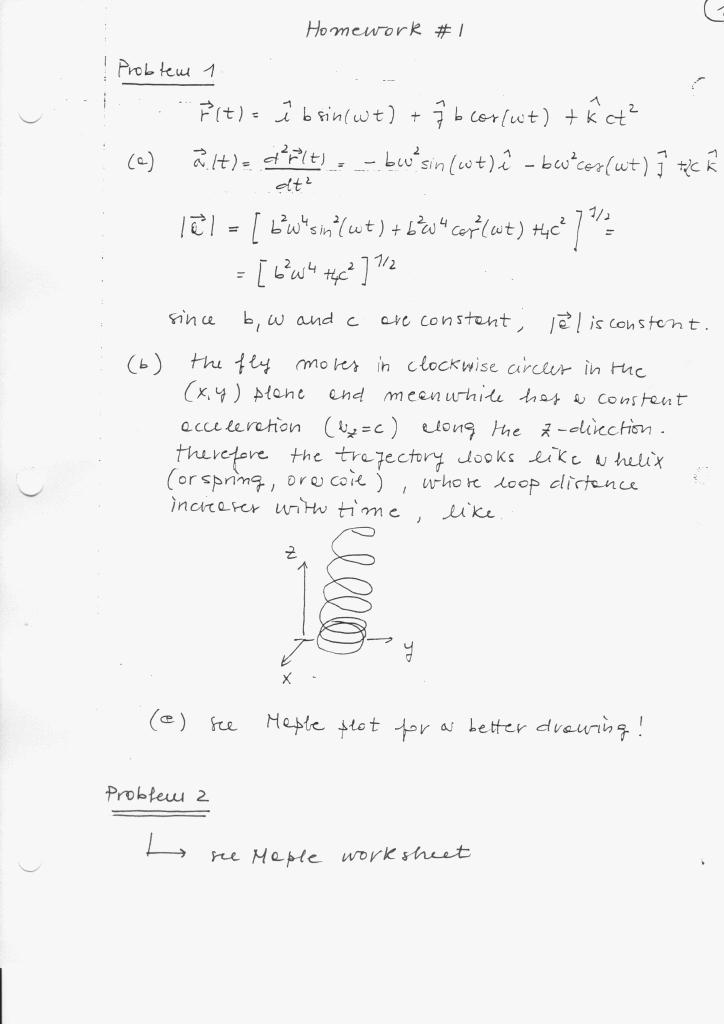 1
Homework #1
Problem 1
r⃗(t) = î b sin(ωt) + ĵ b cos(ωt) + k̂ ct²
(a) a⃗(t) = d²r⃗(t)/dt² = - bω² sin(ωt) î - bω² cos(ωt) ĵ + 2c k̂
|a⃗| = [ b²ω⁴ sin²(ωt) + b²ω⁴ cos²(ωt) + 4c² ]^1/2 =
= [ b²ω⁴ + 4c² ]^1/2
since b, ω and c are constant, |a⃗| is constant.
(b) the fly moves in clockwise circles in the
(x,y) plane and meanwhile has a constant
acceleration (v_z=c) along the z-direction.
therefore the trajectory looks like a helix
(or spring, or a coil), whose loop distance
increases with time, like
z
y
x
(c) see Maple plot for a better drawing!
Problem 2
↳ see Maple worksheet